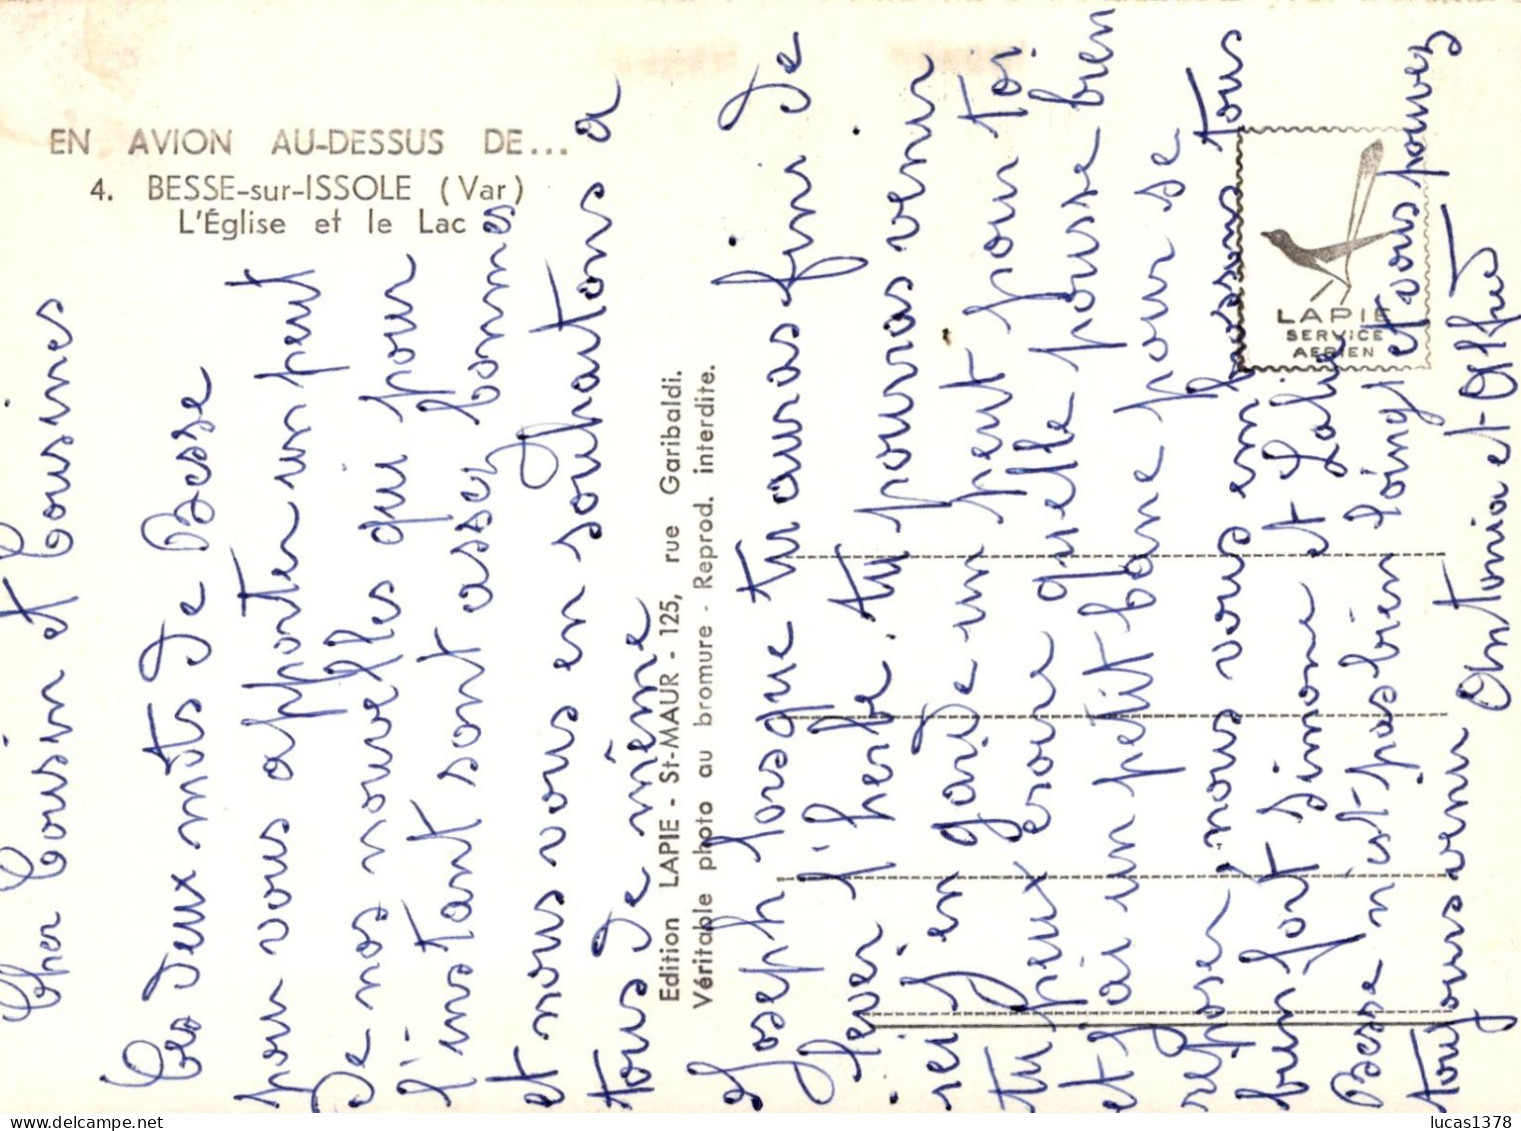 EN AVION AU-DESSUS DE...
4. BESSE-sur-ISSOLE (Var)
L'Église et le Lac
Cher Cousin et Cousines
Ces deux mots de Besse
pour vous apporter un peut
de nos nouvelles qui pour
l'instant sont assez bonnes
et nous vous en souhaitons a
tous de même
Edition LAPIE - St-MAUR - 125, rue Garibaldi.
Véritable photo au bromure - Reprod. interdite.
Joseph lorsque tu auras fini de
lever l'herbe. tu pouras venir
ici j'en garde un peut pour toi.
tu peux croire quelle pousse bien
et j'ai un petit banc pour se
reposer. nous vous embrassons tous
bien fort Simone et
Besse n'est pas bien loing et vous pouvez
toujours venir Antonia et Alfred
LAPIE
SERVICE
AERIEN
lucas1378